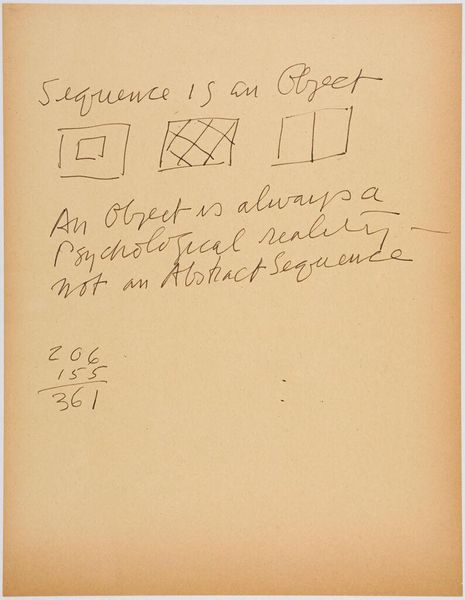 Sequence is an Object
An Object is always a
Psychological reality —
not an Abstract Sequence
206
155
361